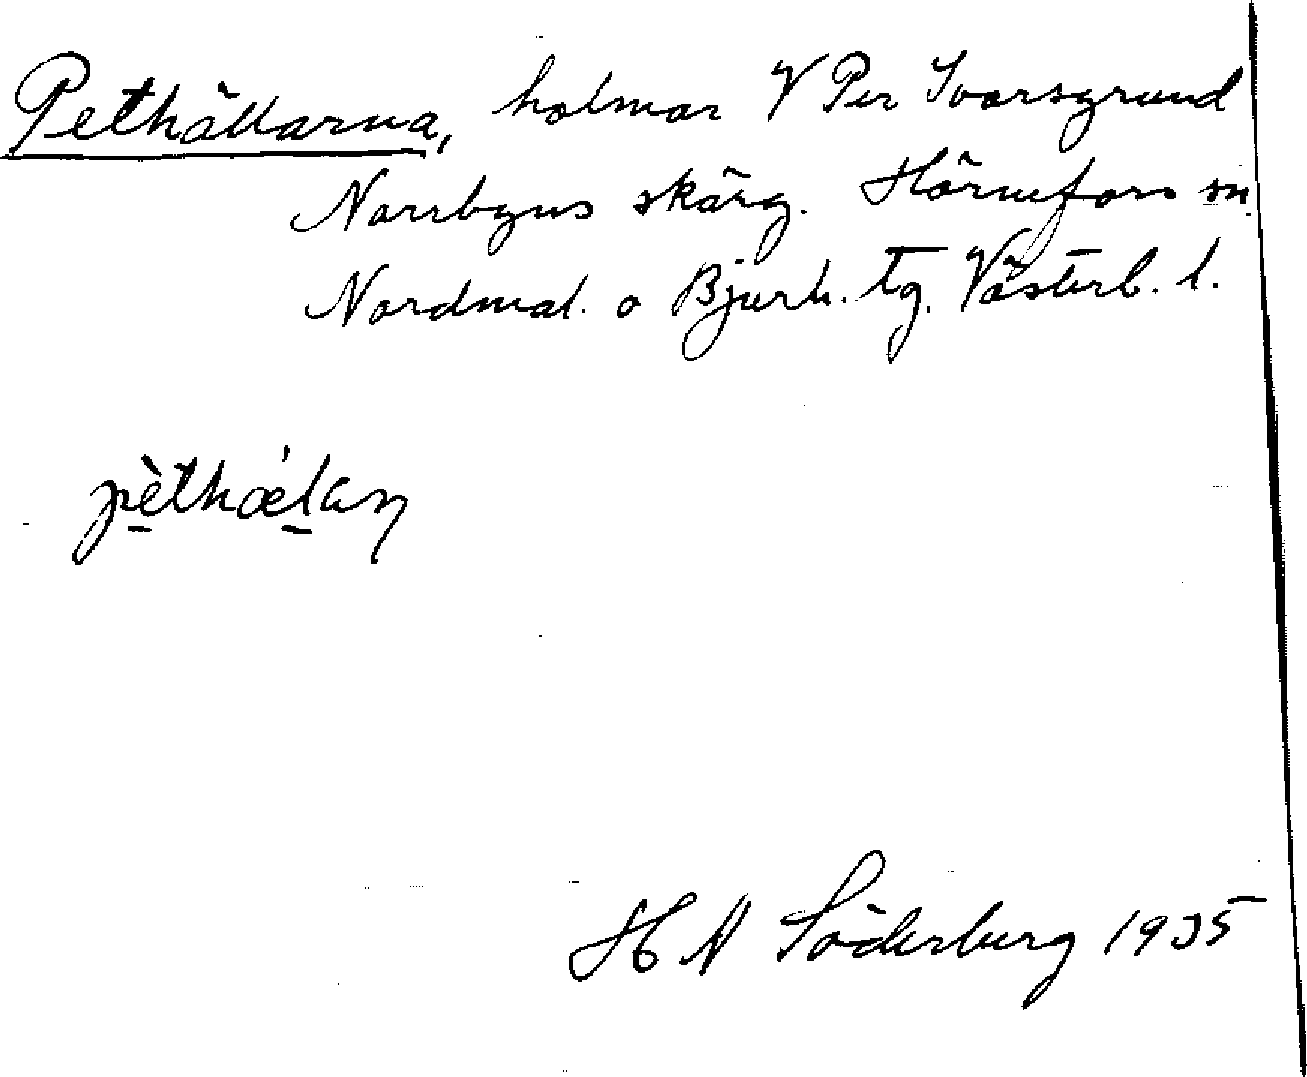 Pethällarna, holmar V Per Ivarsgrund
Norrbyns skärg. Hörnefors sn
Nordmal. o Bjurh. tg. Västerb. l.
pèthæ̀lan
H N Söderberg 1935